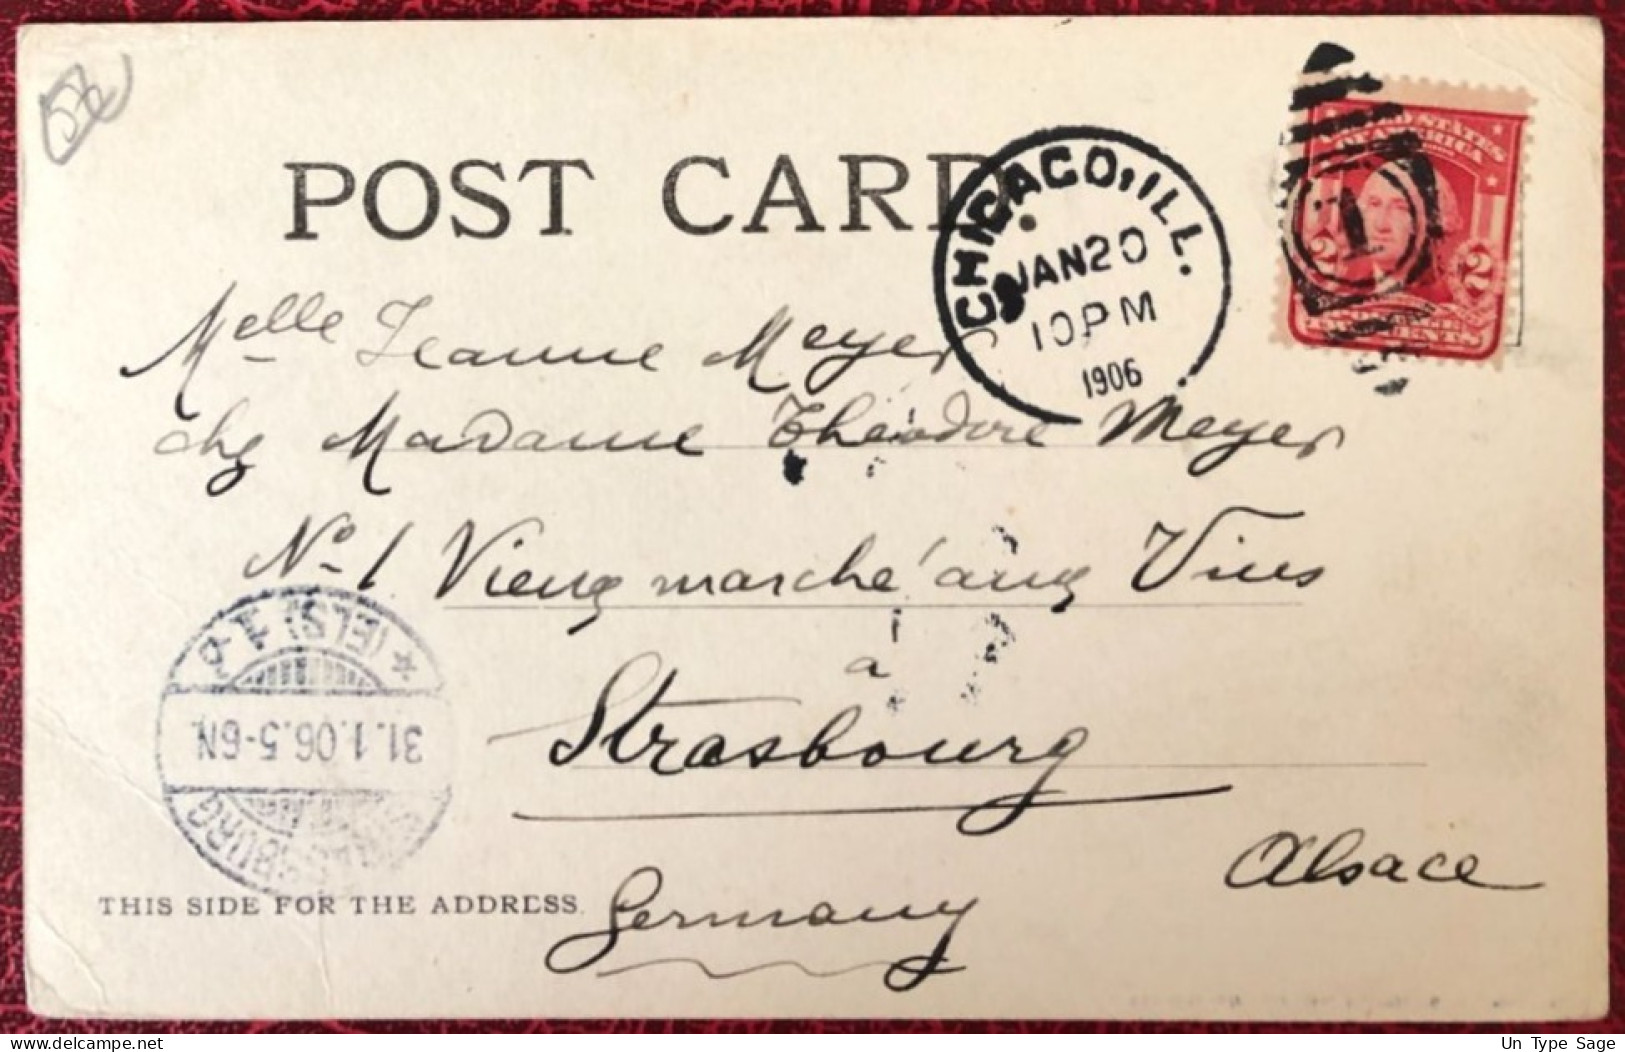 56
POST CARD
CHICAGO, ILL.
JAN 20
10 PM
1906
1
UNITED STATES
OF AMERICA
2 2
POSTAGE
TWO CENTS
Melle Jeanne Meyer
chz Madame Théodore Meyer
No 1 Vieux marché aux Vins
à
Strasbourg
Alsace
Germany
STRASSBURG
31.1.06.5-6N.
* (ELS)
THIS SIDE FOR THE ADDRESS.
Un Type Sage
delcampe.net